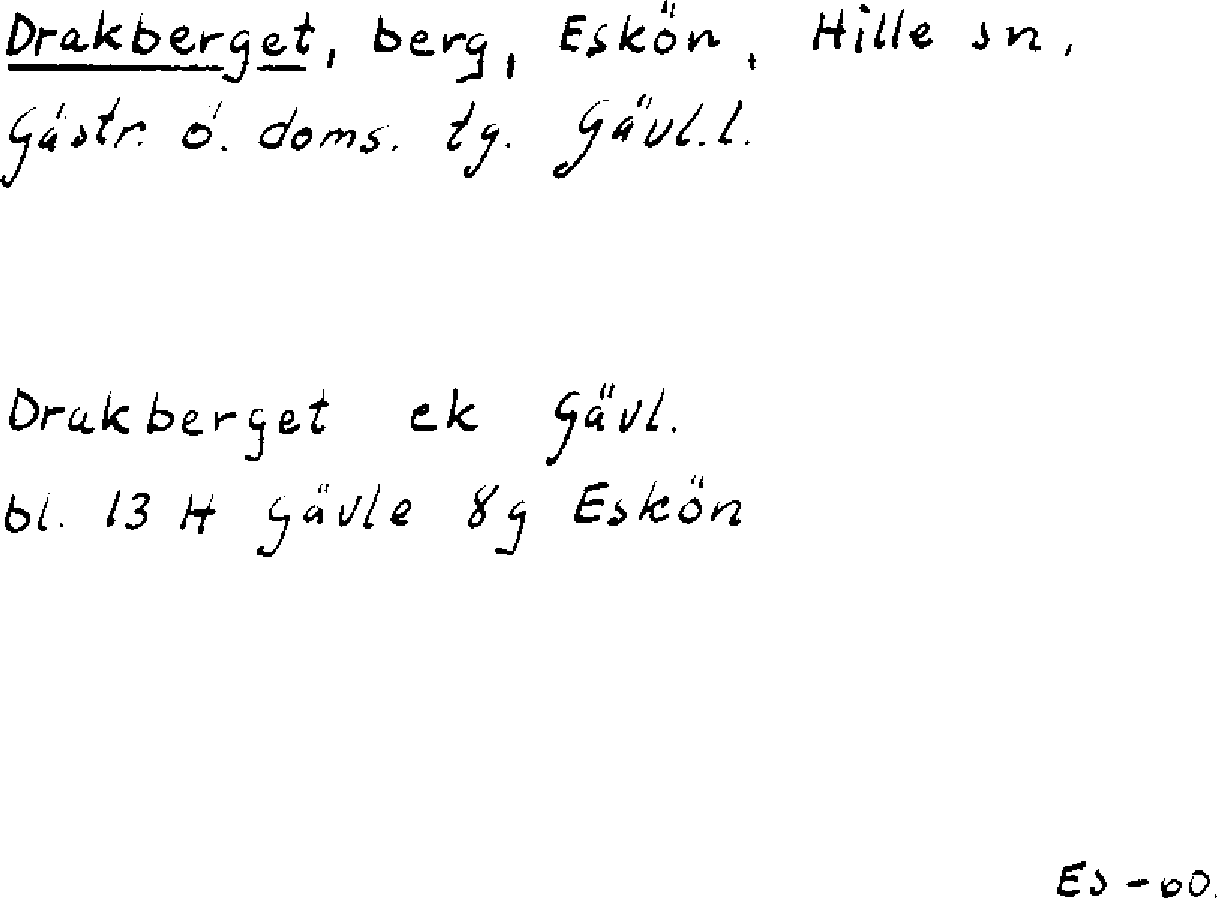 Drakberget, berg, Eskön, Hille sn,
Gästr. ö. doms. tg. Gävl.l.
Drakberget ek Gävl.
bl. 13 H Gävle 8g Eskön
Es -60.